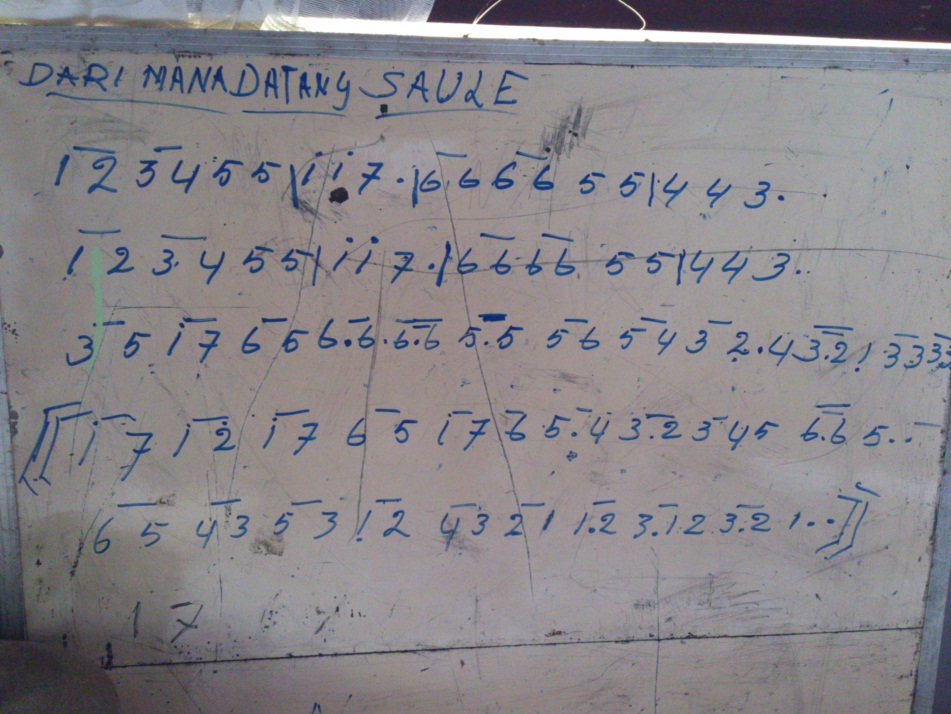 DARI MANA DATANG SAULE
1 2 3 4 5 5 | i i 7 . | 6 6 6 6 5 5 | 4 4 3 .
1 2 3 4 5 5 | i i 7 . | 6 6 6 6 5 5 | 4 4 3 . .
3 5 i 7 6 5 6.6.6.6 5.5 5 6 5 4 3 2.4 3.2 1 3 3 3 3
[[ i 7 i 2 i 7 6 5 i 7 6 5.4 3.2 3 4 5 6.6 5 . .
6 5 4 3 5 3 1 2 4 3 2 1 1.2 3.1 2 3.2 1 . . ]]
1 7